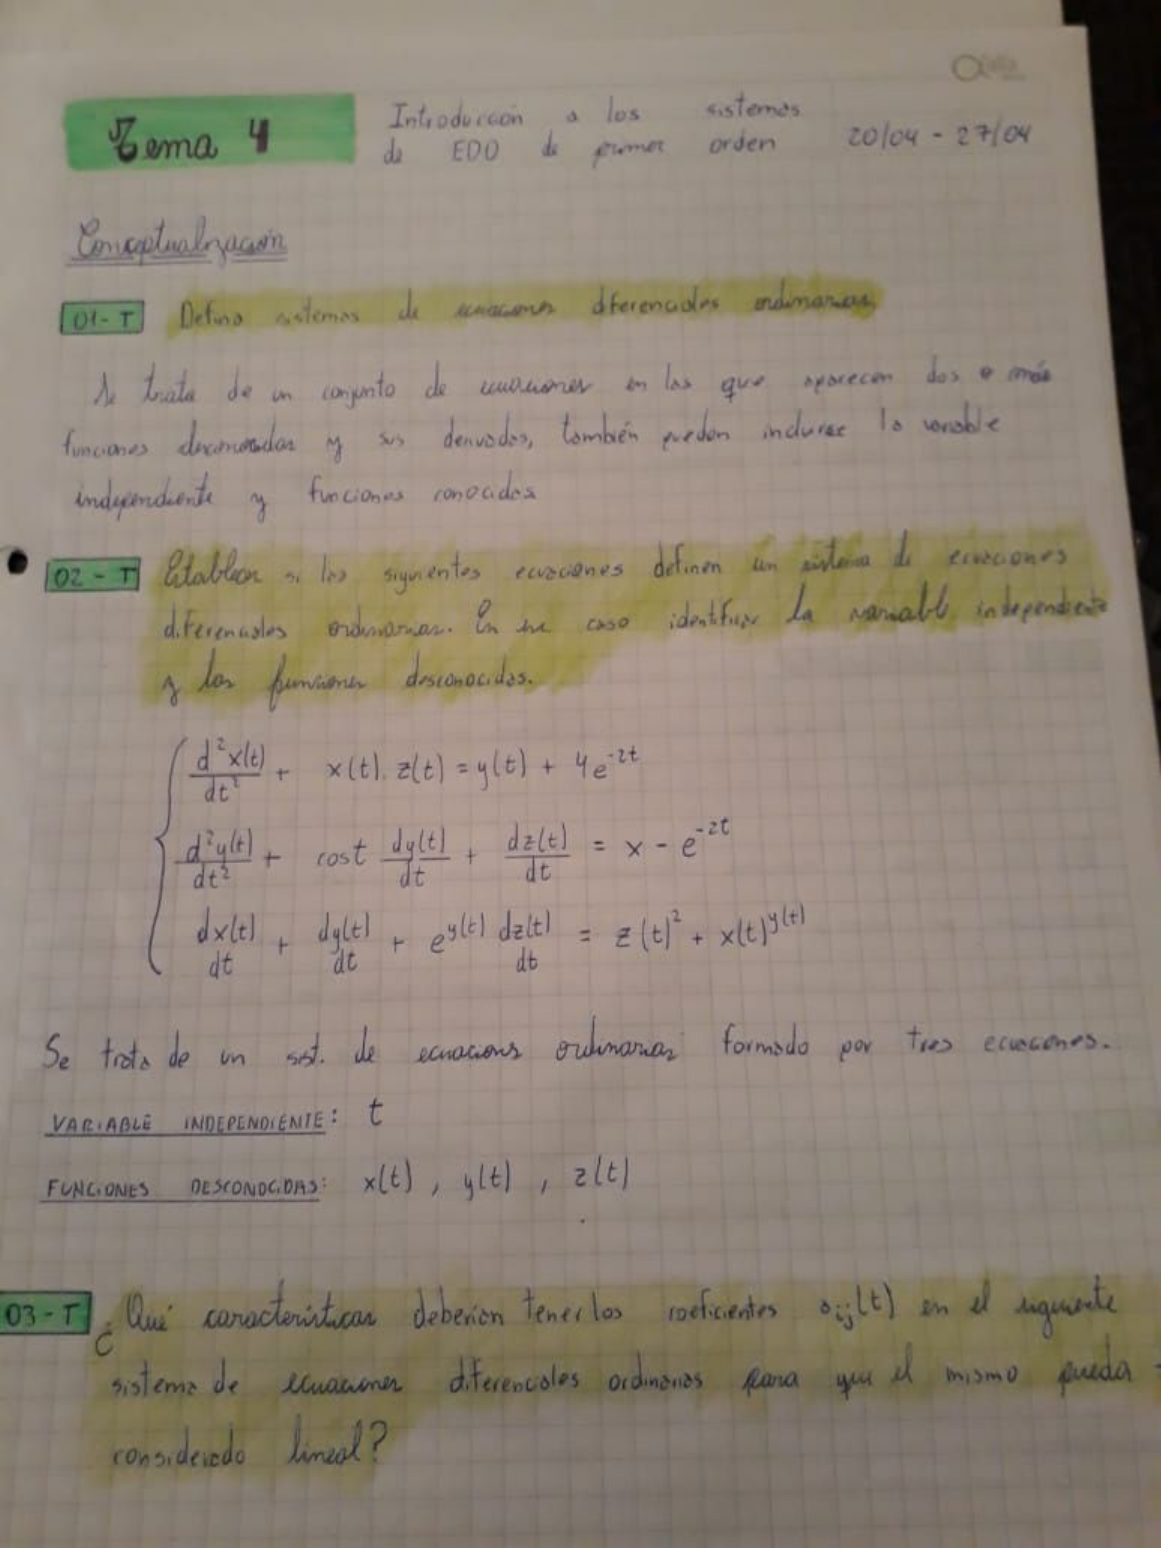 Tema 4
Introducción a los sistemas
de EDO de primer orden
20/04 - 27/04
Conceptualización
01-T Defina sistemas de ecuaciones diferenciales ordinarias
Se trata de un conjunto de ecuaciones en las que aparecen dos o más
funciones desconocidas y sus derivadas, también pueden incluirse la variable
independiente y funciones conocidas
02-T Establecer si las siguientes ecuaciones definen un sistema de ecuaciones
diferenciales ordinarias. En ese caso identificar la variable independiente
y las funciones desconocidas.
d²x(t)/dt² + x(t).z(t) = y(t) + 4e^-2t
d²y(t)/dt² + cost dy(t)/dt + dz(t)/dt = x - e^-2t
dx(t)/dt + dy(t)/dt + e^y(t) dz(t)/dt = z(t)² + x(t)^y(t)
Se trata de un sist. de ecuacions ordinarias formado por tres ecuaciones.
VARIABLE INDEPENDIENTE: t
FUNCIONES DESCONOCIDAS: x(t), y(t), z(t)
03-T ¿Qué características deberían tener los coeficientes aij(t) en el siguiente
sistema de ecuaciones diferenciales ordinarias para que el mismo pueda
considerado lineal?